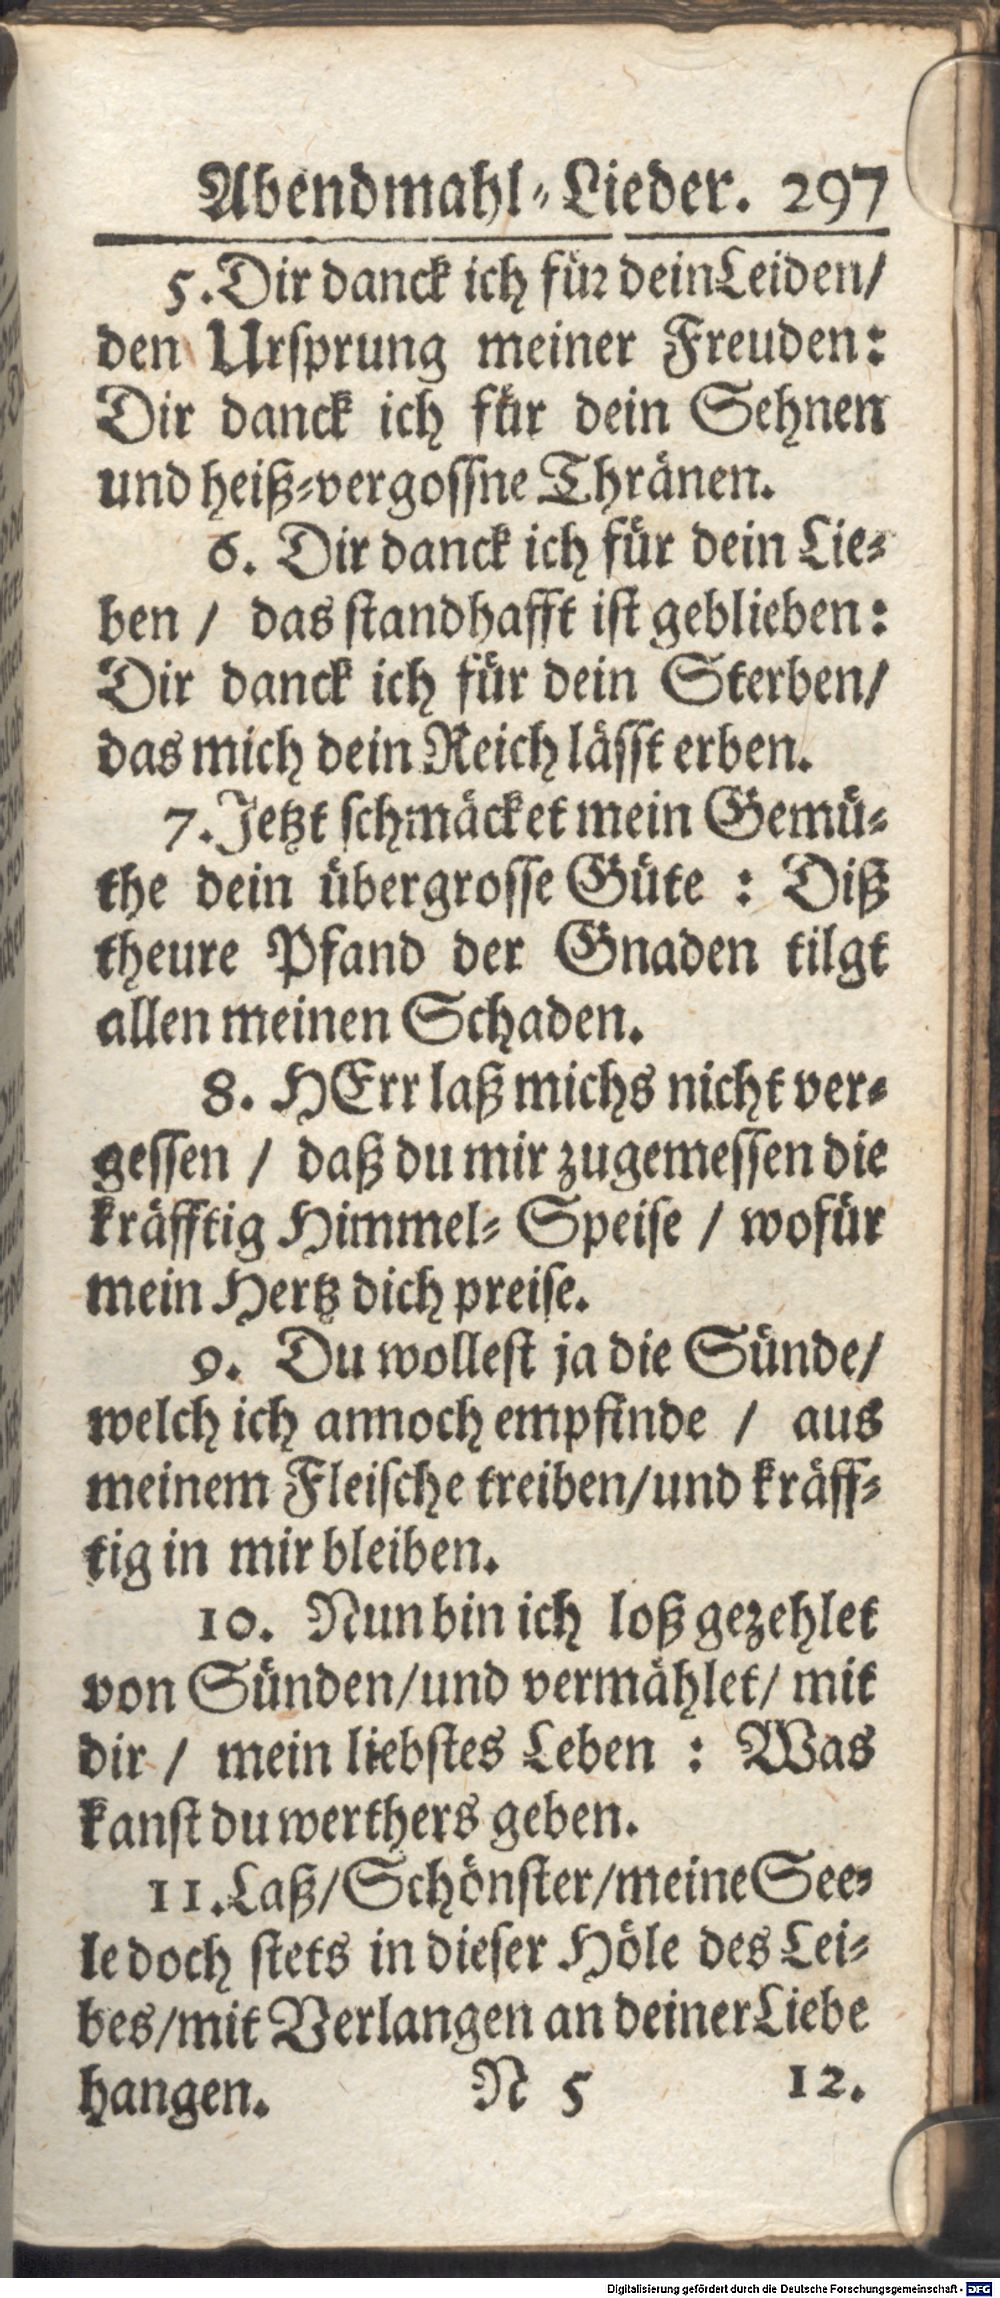 Abendmahl-Lieder. 297
5. Dir danck ich für dein Leiden/
den Ursprung meiner Freuden:
Dir danck ich für dein Sehnen
und heiß-vergossne Thränen.
6. Dir danck ich für dein Lie-
ben / das standhafft ist geblieben:
Dir danck ich für dein Sterben/
das mich dein Reich lässt erben.
7. Jetzt schmäcket mein Gemü-
the dein übergrosse Güte : Diß
theure Pfand der Gnaden tilgt
allen meinen Schaden.
8. HErr laß michs nicht ver-
gessen / daß du mir zugemessen die
kräfftig Himmel-Speise / wofür
mein Hertz dich preise.
9. Du wollest ja die Sünde/
welch ich annoch empfinde / aus
meinem Fleische treiben/und kräff-
tig in mir bleiben.
10. Nun bin ich loß gezehlet
von Sünden/und vermählet/ mit
dir / mein liebstes Leben : Was
kanst du werthers geben.
11. Laß/Schönster/meine See-
le doch stets in dieser Höle des Lei-
bes/mit Verlangen an deiner Liebe
hangen. N 5 12.
Digitalisierung gefördert durch die Deutsche Forschungsgemeinschaft - DFG